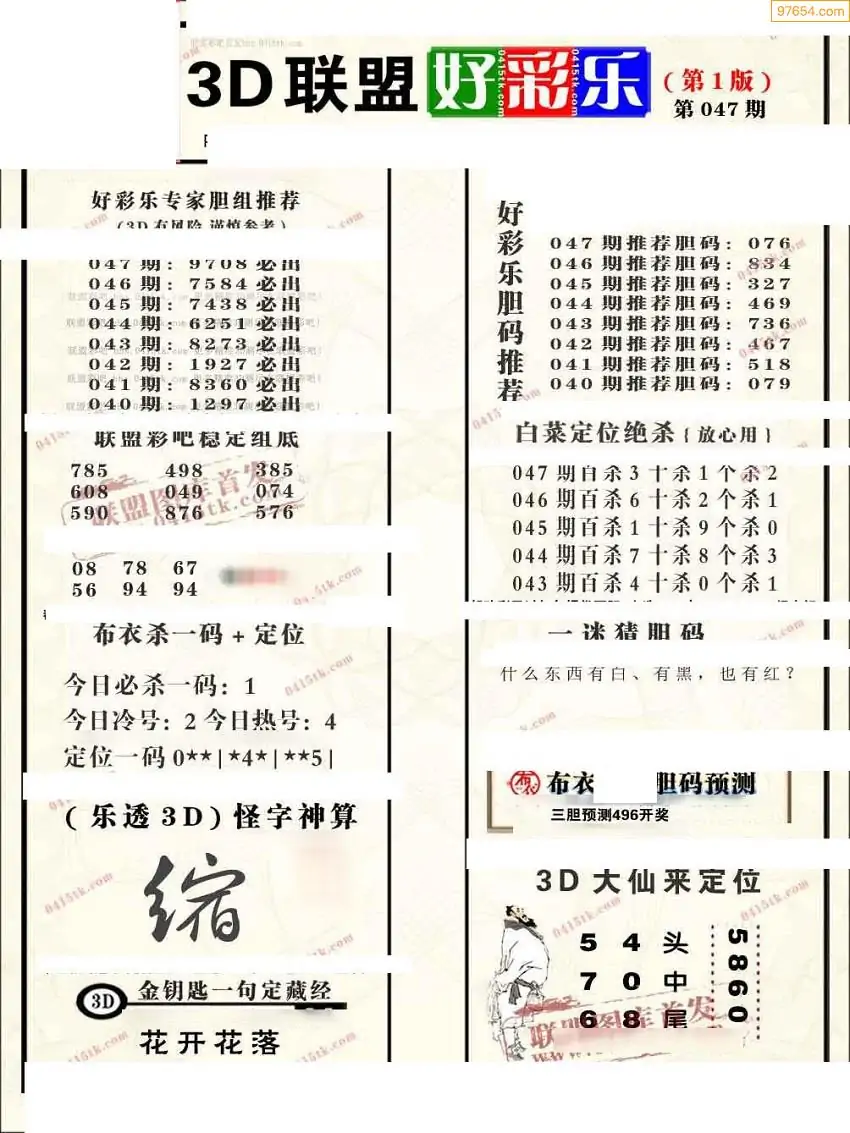 97654.com
3D联盟好彩乐
0415tk.com
0415tk.com
(第1版)
第047期
好彩乐专家胆组推荐
(3D有风险 谨慎参考)
047期：9708必出
046期：7584必出
045期：7438必出
044期：6251必出
043期：8273必出
042期：1927必出
041期：8360必出
040期：1297必出
联盟彩吧稳定组底
785 498 385
608 049 074
590 876 576
联盟图库首发
0415tk.com
08 78 67
56 94 94
布衣杀一码+定位
今日必杀一码：1
今日冷号：2 今日热号：4
定位一码0**|*4*|**5|
(乐透3D)怪字神算
缩
3D 金钥匙一句定藏经
花开花落
好彩乐胆码推荐
047期推荐胆码：076
046期推荐胆码：834
045期推荐胆码：327
044期推荐胆码：469
043期推荐胆码：736
042期推荐胆码：467
041期推荐胆码：518
040期推荐胆码：079
白菜定位绝杀{放心用}
047期百杀3十杀1个杀2
046期百杀6十杀2个杀1
045期百杀1十杀9个杀0
044期百杀7十杀8个杀3
043期百杀4十杀0个杀1
一谜猜胆码
什么东西有白、有黑，也有红？
布衣 胆码预测
三胆预测496开奖
3D大仙来定位
5 4 头
7 0 中
6 8 尾
5860
联盟图库首发